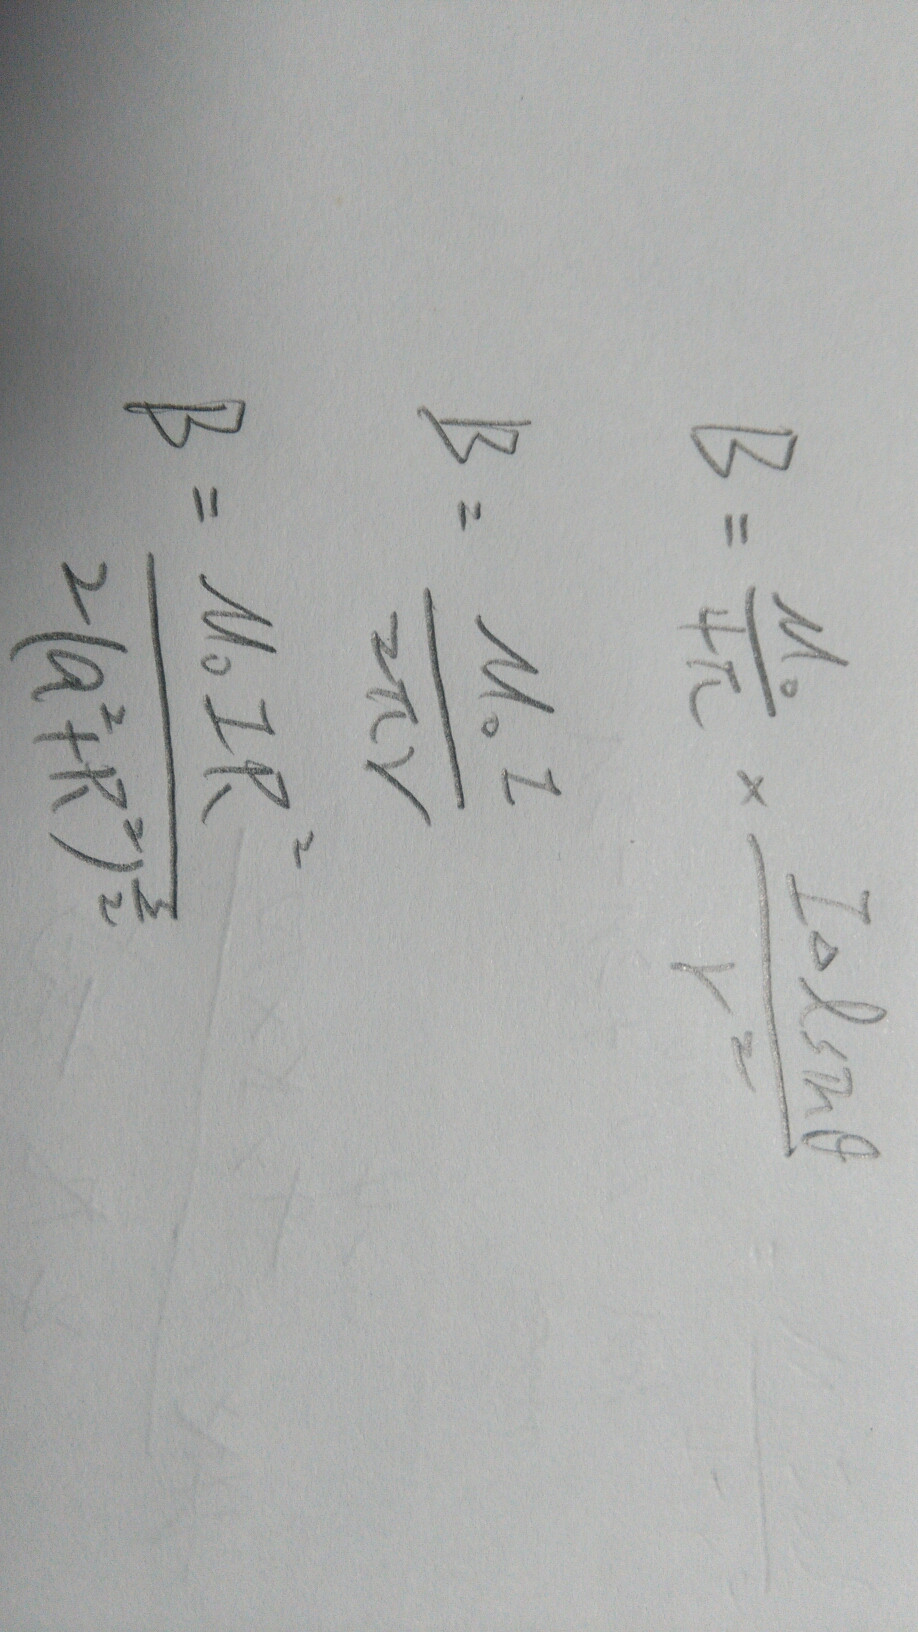 B = μ₀/4π × IΔl sinθ/r²
B = μ₀I/2πr
B = μ₀IR²/2(a²+R²)^(3/2)